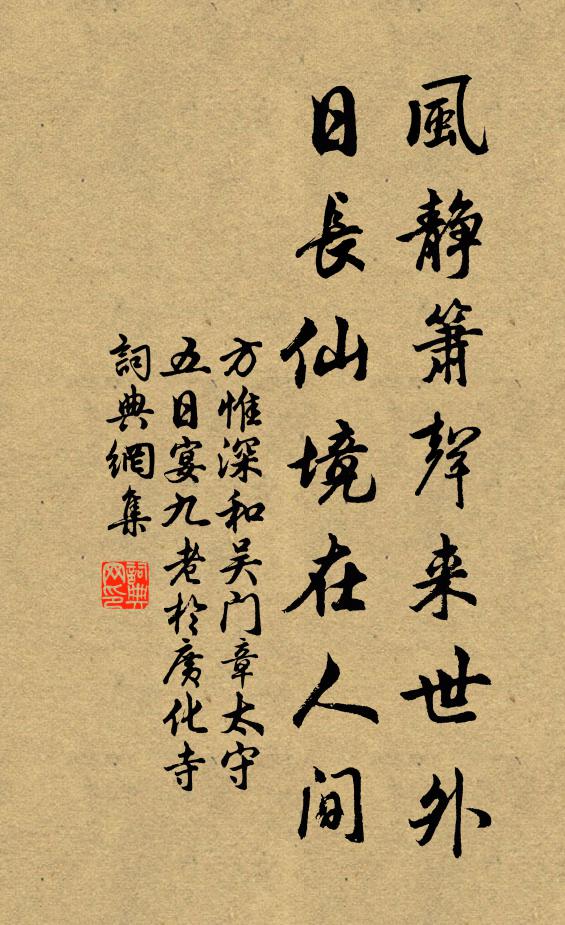 風靜簫聲来世外
日長仙境在人间
方惟深和吴门章太守
五日宴九老於廣化寺
詞典網集
詞典网印